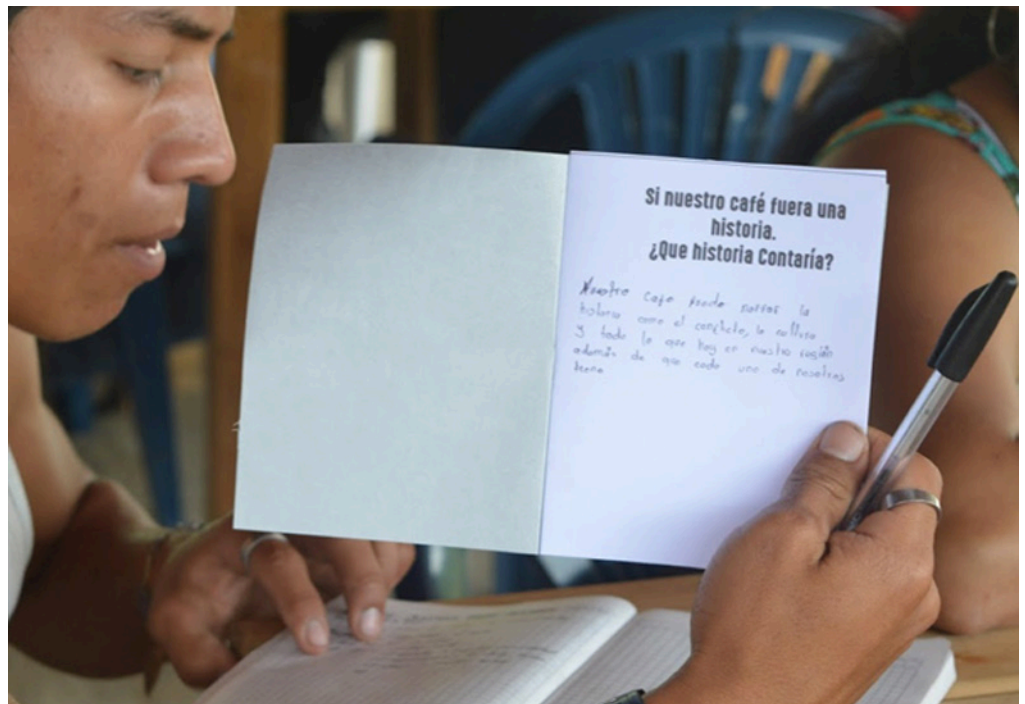 Si nuestro café fuera una
historia.
¿Que historia Contaría?
Nuestro Cafe puede narrar la
historia como el conflicto, la cultura
y todo lo que hay en nuestra región
además de que cada uno de nosotros
tiene